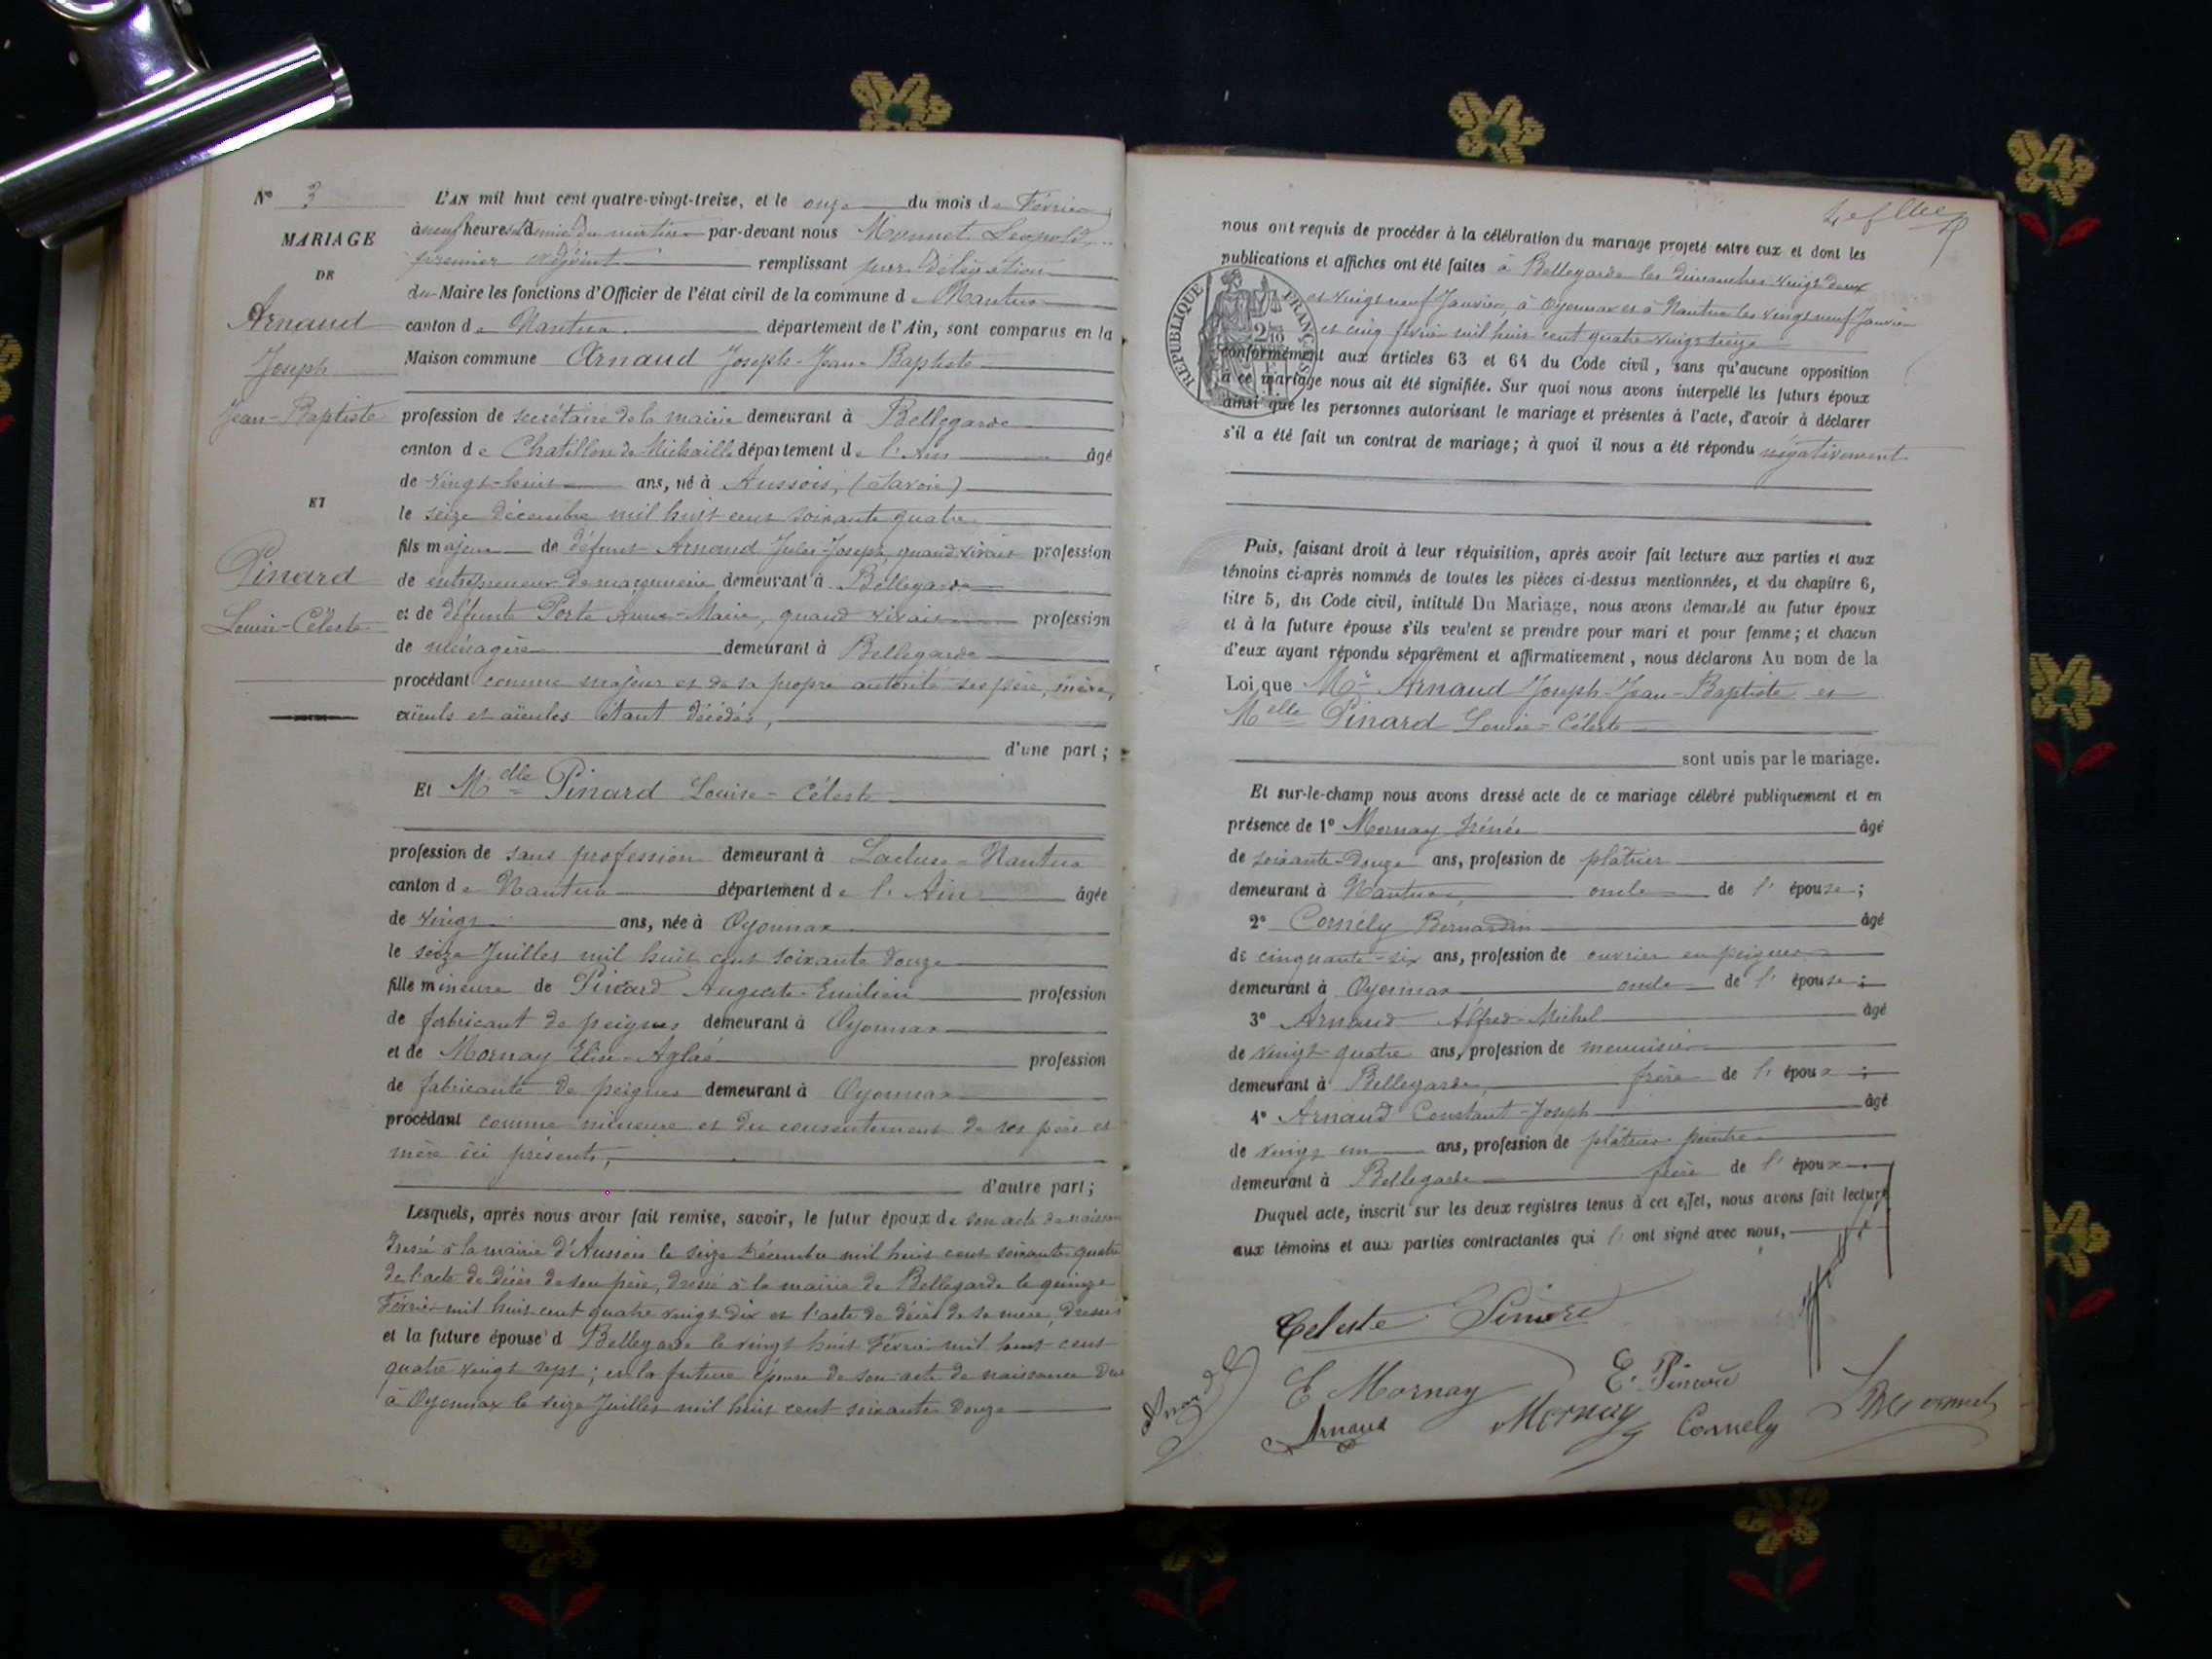 N° 3
MARIAGE
DE
Arnaud
Joseph
Jean-Baptiste
ET
Pinard
Louise-Céleste
L'AN mil huit cent quatre-vingt-treize, et le onze du mois de Février
à neuf heures et demie du matin par-devant nous Monnet Léopold
premier adjoint remplissant par délégation
du Maire les fonctions d'Officier de l'état civil de la commune de Nantua
canton de Nantua département de l'Ain, sont comparus en la
Maison commune Arnaud Joseph-Jean-Baptiste
profession de secrétaire de la mairie demeurant à Bellegarde
canton de Chatillon de Michaille département de l'Ain âgé
de vingt-huit ans, né à Aussois, (Savoie)
le seize décembre mil huit cent soixante quatre
fils majeur de défunt Arnaud Jules-Joseph, quand vivait profession
de entrepreneur de maçonnerie demeurant à Bellegarde
et de défunte Porte Anne-Marie, quand vivait profession
de ménagère demeurant à Bellegarde
procédant comme majeur et de sa propre autorité ses père, mère,
aïeuls et aïeules étant décédés,
d'une part;
Et Melle Pinard Louise-Céleste
profession de sans profession demeurant à Lacluse-Nantua
canton de Nantua département de l'Ain âgée
de vingt ans, née à Oyonnax
le seize Juillet mil huit cent soixante douze
fille mineure de Pinard Auguste-Emilien profession
de fabricant de peignes demeurant à Oyonnax
et de Mornay Elise-Aglaé profession
de fabricante de peignes demeurant à Oyonnax
procédant comme mineure et du consentement de ses père et
mère ici présents,
d'autre part;
Lesquels, après nous avoir fait remise, savoir, le futur époux de son acte de naissance
dressé à la mairie d'Aussois le seize Décembre mil huit cent soixante quatre
de l'acte de décès de son père, dressé à la mairie de Bellegarde le quinze
Février mil huit cent quatre vingt dix et l'acte de décès de sa mère, dressé
et la future épouse d Bellegarde le vingt huit Février mil huit cent
quatre vingt sept; et la future épouse de son acte de naissance
à Oyonnax le seize Juillet mil huit cent soixante douze
nous ont requis de procéder à la célébration du mariage projeté entre eux et dont les
publications et affiches ont été faites à Bellegarde les dimanches vingt deux
et vingt neuf Janvier, à Oyonnax et à Nantua les vingt neuf Janvier
et cinq février mil huit cent quatre vingt treize
RÉPUBLIQUE FRANÇAISE
conformément aux articles 63 et 64 du Code civil, sans qu'aucune opposition
à ce mariage nous ait été signifiée. Sur quoi nous avons interpellé les futurs époux
ainsi que les personnes autorisant le mariage et présentes à l'acte, d'avoir à déclarer
s'il a été fait un contrat de mariage; à quoi il nous a été répondu négativement
Puis, faisant droit à leur réquisition, après avoir fait lecture aux parties et aux
témoins ci-après nommés de toutes les pièces ci-dessus mentionnées, et du chapitre 6,
titre 5, du Code civil, intitulé Du Mariage, nous avons demandé au futur époux
et à la future épouse s'ils veulent se prendre pour mari et pour femme; et chacun
d'eux ayant répondu séparément et affirmativement, nous déclarons Au nom de la
Loi que Mr Arnaud Joseph-Jean-Baptiste et
Melle Pinard Louise-Céleste
sont unis par le mariage.
Et sur-le-champ nous avons dressé acte de ce mariage célébré publiquement et en
présence de 1° Mornay Irénée âgé
de soixante-douze ans, profession de plâtrier
demeurant à Nantua, oncle de l'épouse;
2° Cornély Bernardin âgé
de cinquante-six ans, profession de ouvrier en peignes
demeurant à Oyonnax oncle de l'épouse;
3° Arnaud Alfred-Michel âgé
de vingt-quatre ans, profession de menuisier
demeurant à Bellegarde, frère de l'époux;
4° Arnaud Constant-Joseph âgé
de vingt un ans, profession de plâtrier peintre
demeurant à Bellegarde frère de l'époux
Duquel acte, inscrit sur les deux registres tenus à cet effet, nous avons fait lecture
aux témoins et aux parties contractantes qui l'ont signé avec nous,
Celeste Pinard
E Mornay
E. Pinard
Arnaud
Mornay
Cornely